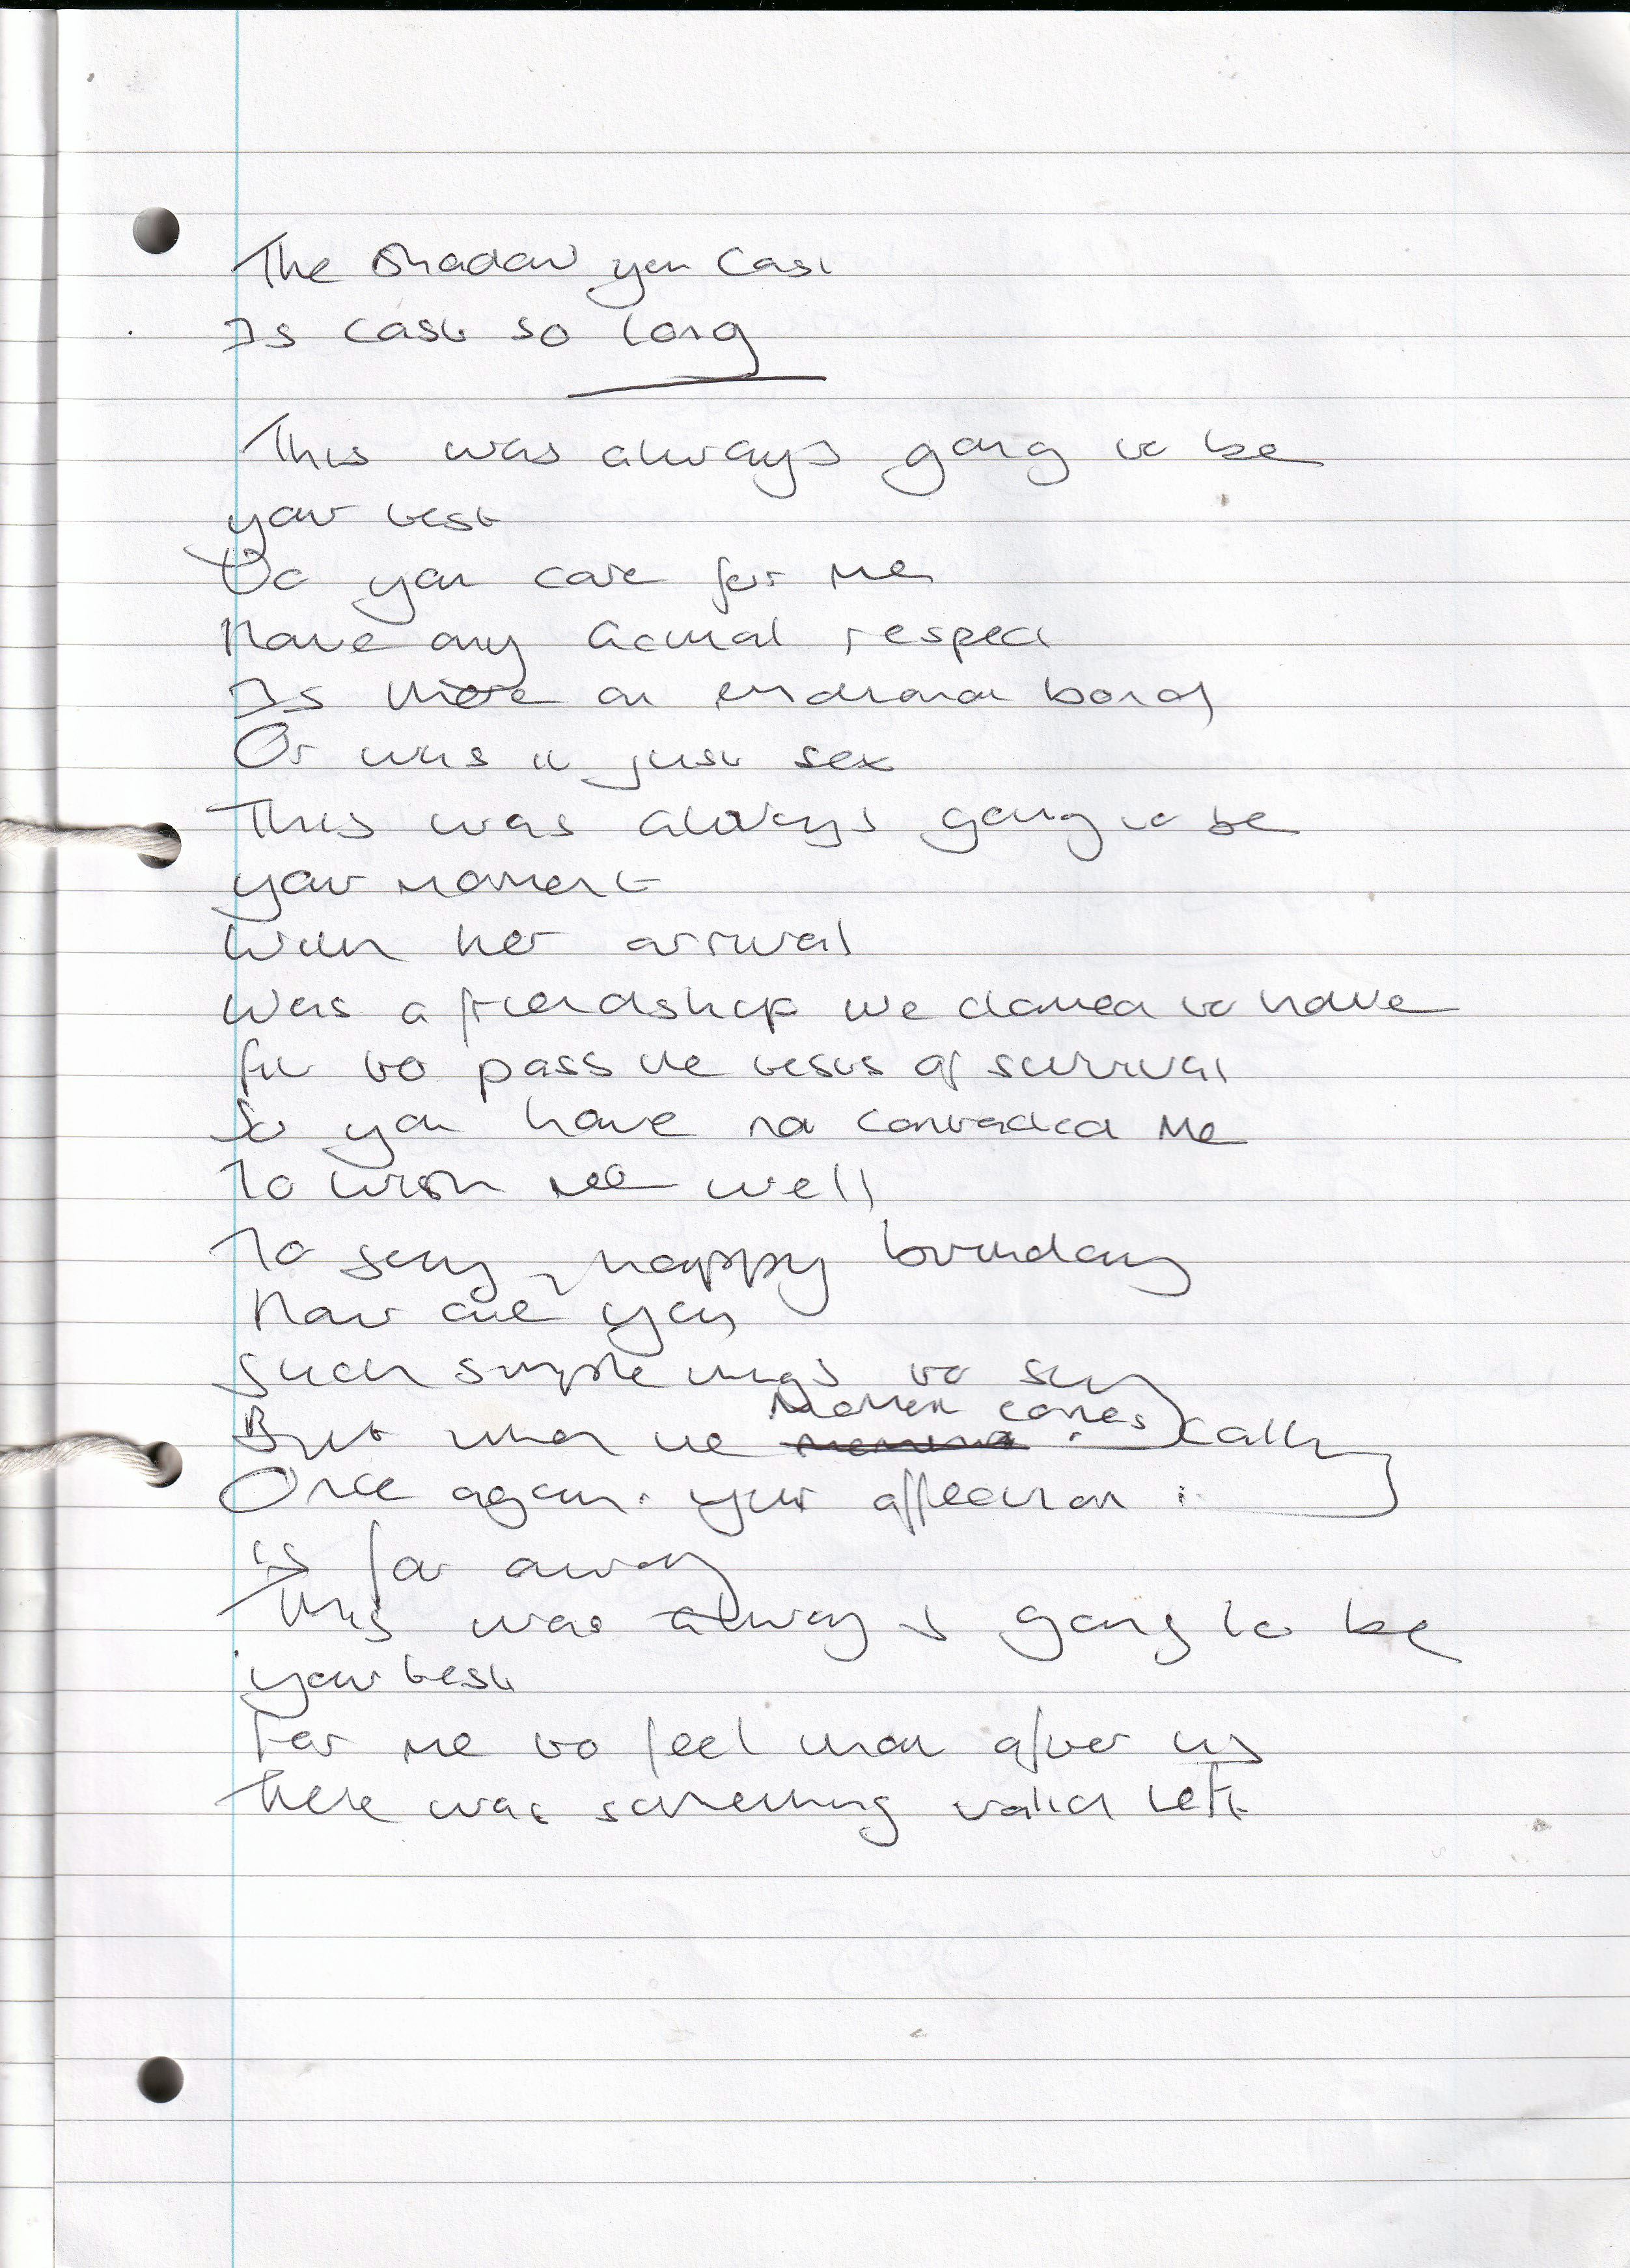 The Shadow you Cast
Is cast so long
This was always going to be
your test
Do you care for me
Have any actual respect
Is there an emotional bond
Or was it just sex
This was always going to be
your moment
With her arrival
Was a friendship we claimed to have
fit to pass the tests of survival
So you have not contacted me
To wish me well
To say happy birthday
How are you
Such simple things to say
But when the moment comes calling
Once again your affection
is far away
This was always going to be
your test
For me to feel that after us
there was something valid left